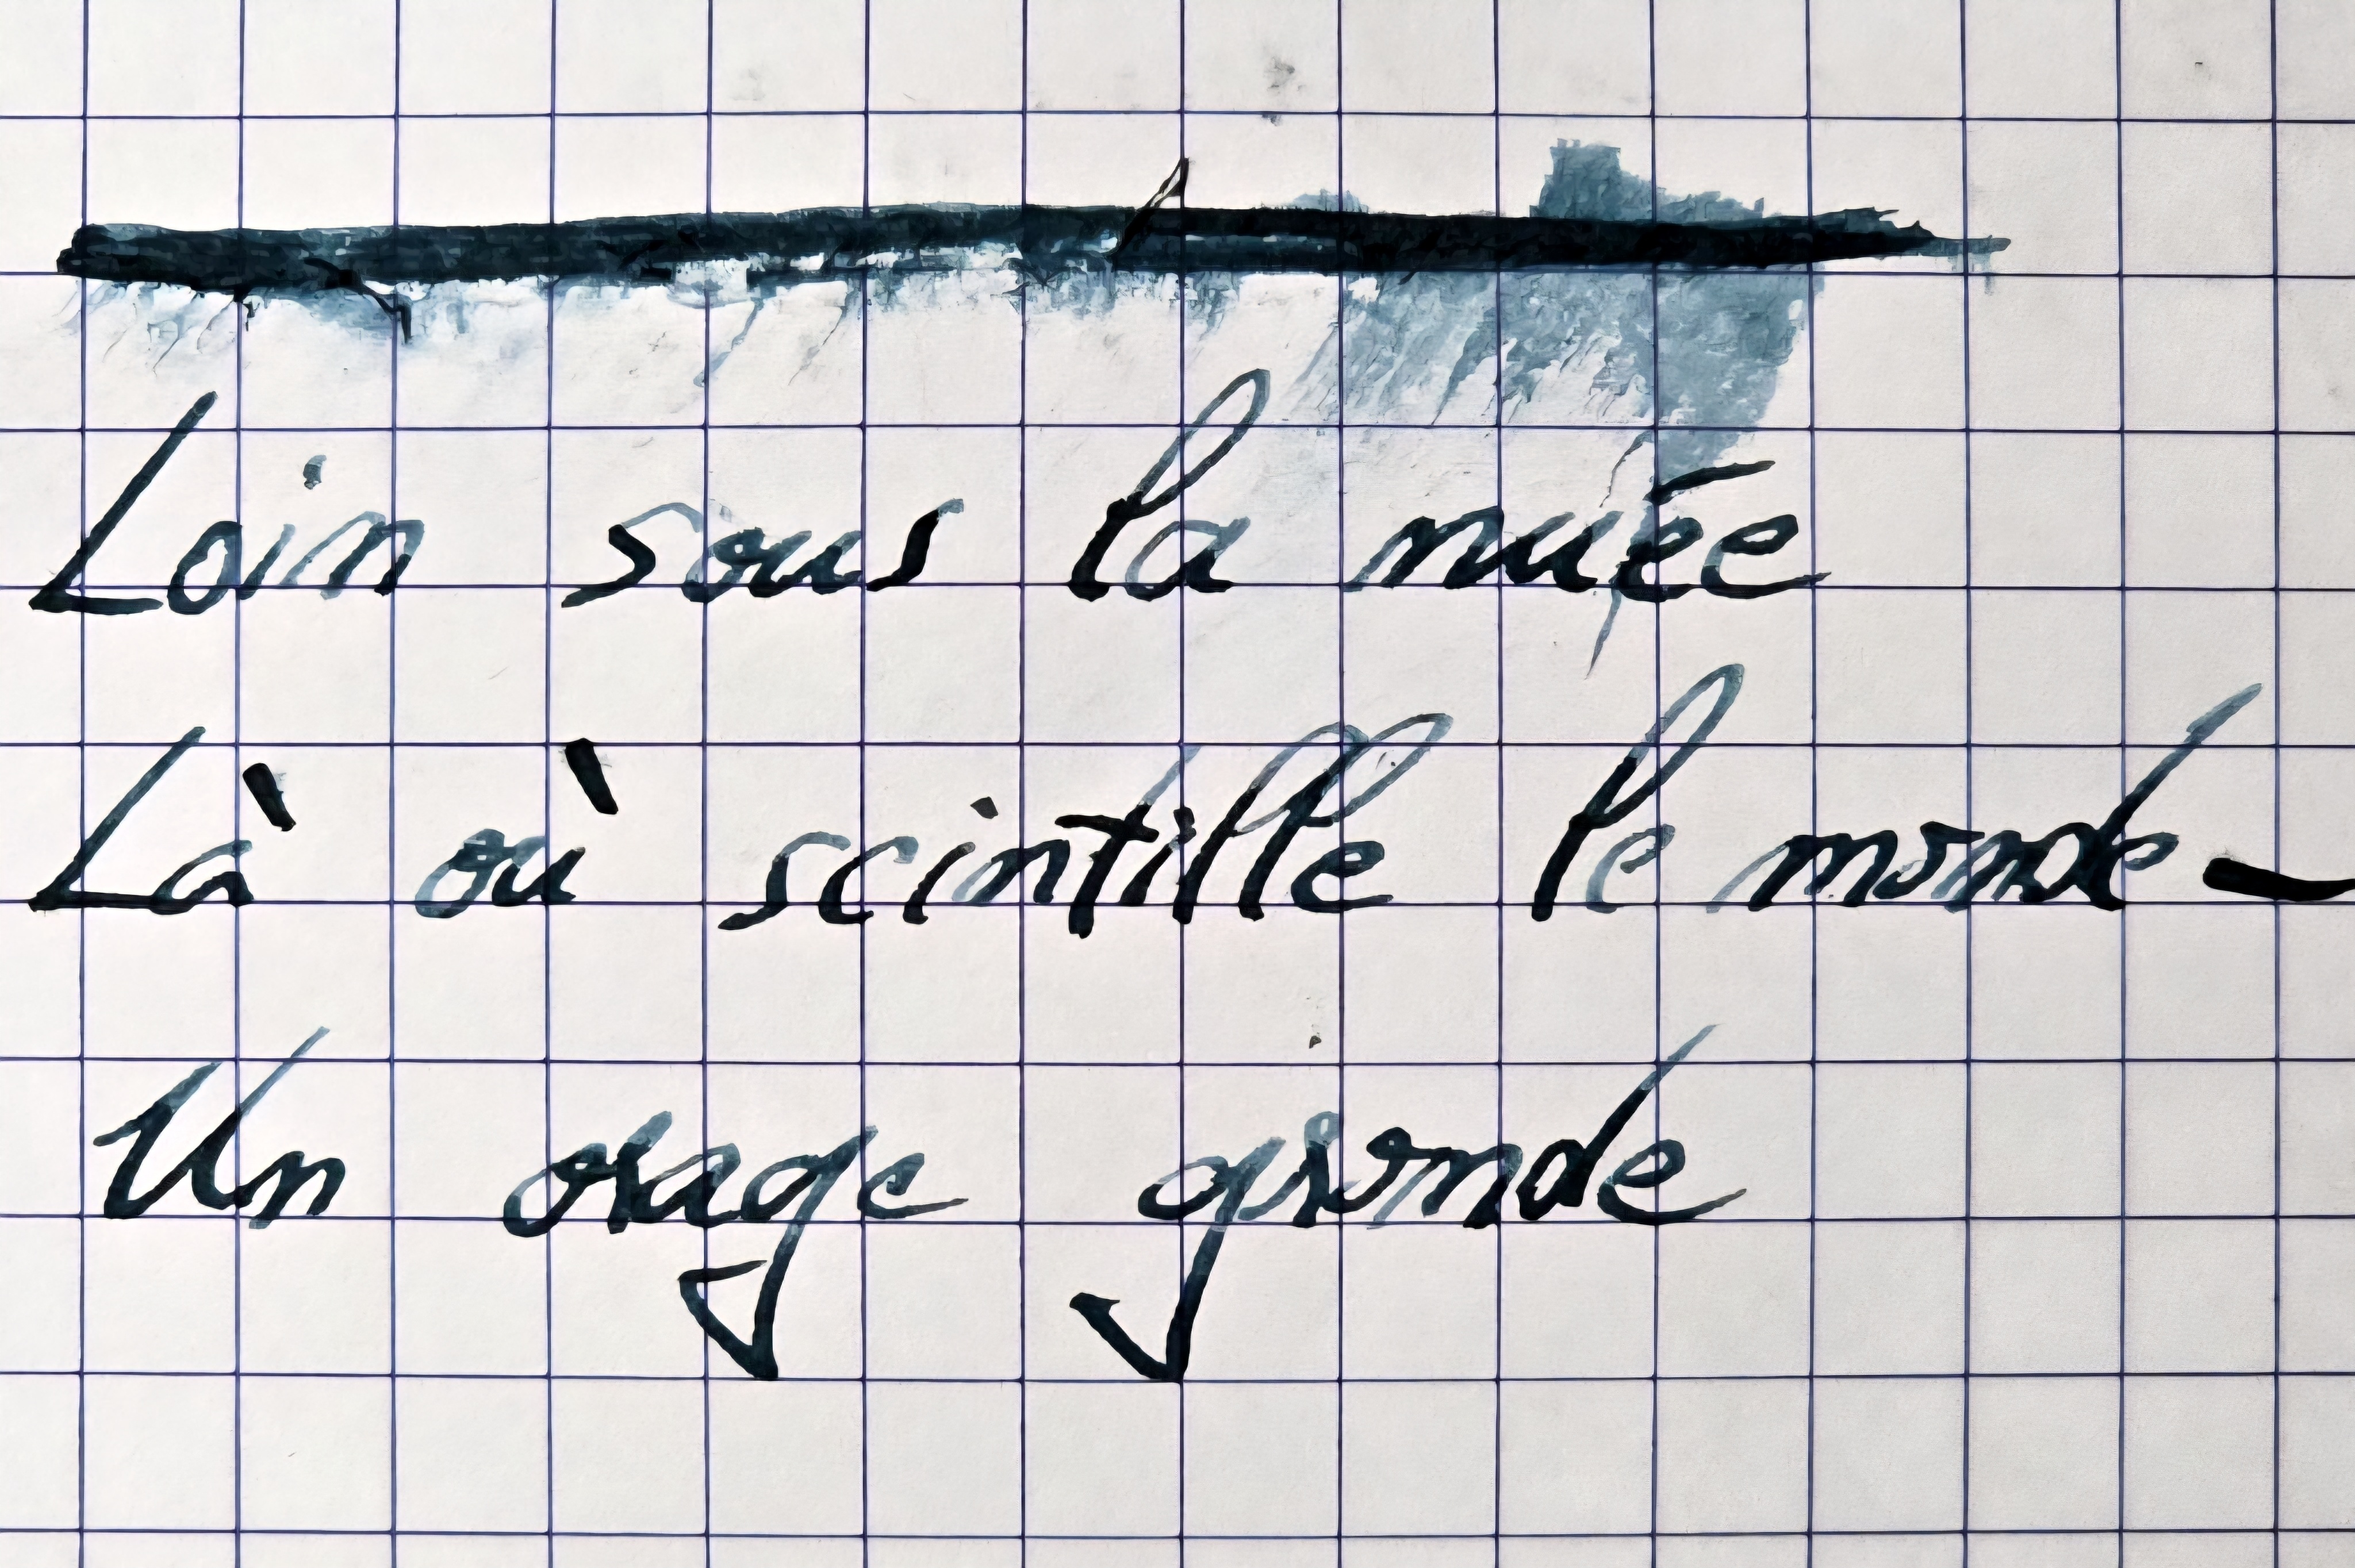 Loin sous la nuée
Là où scintille le monde —
Un orage gronde